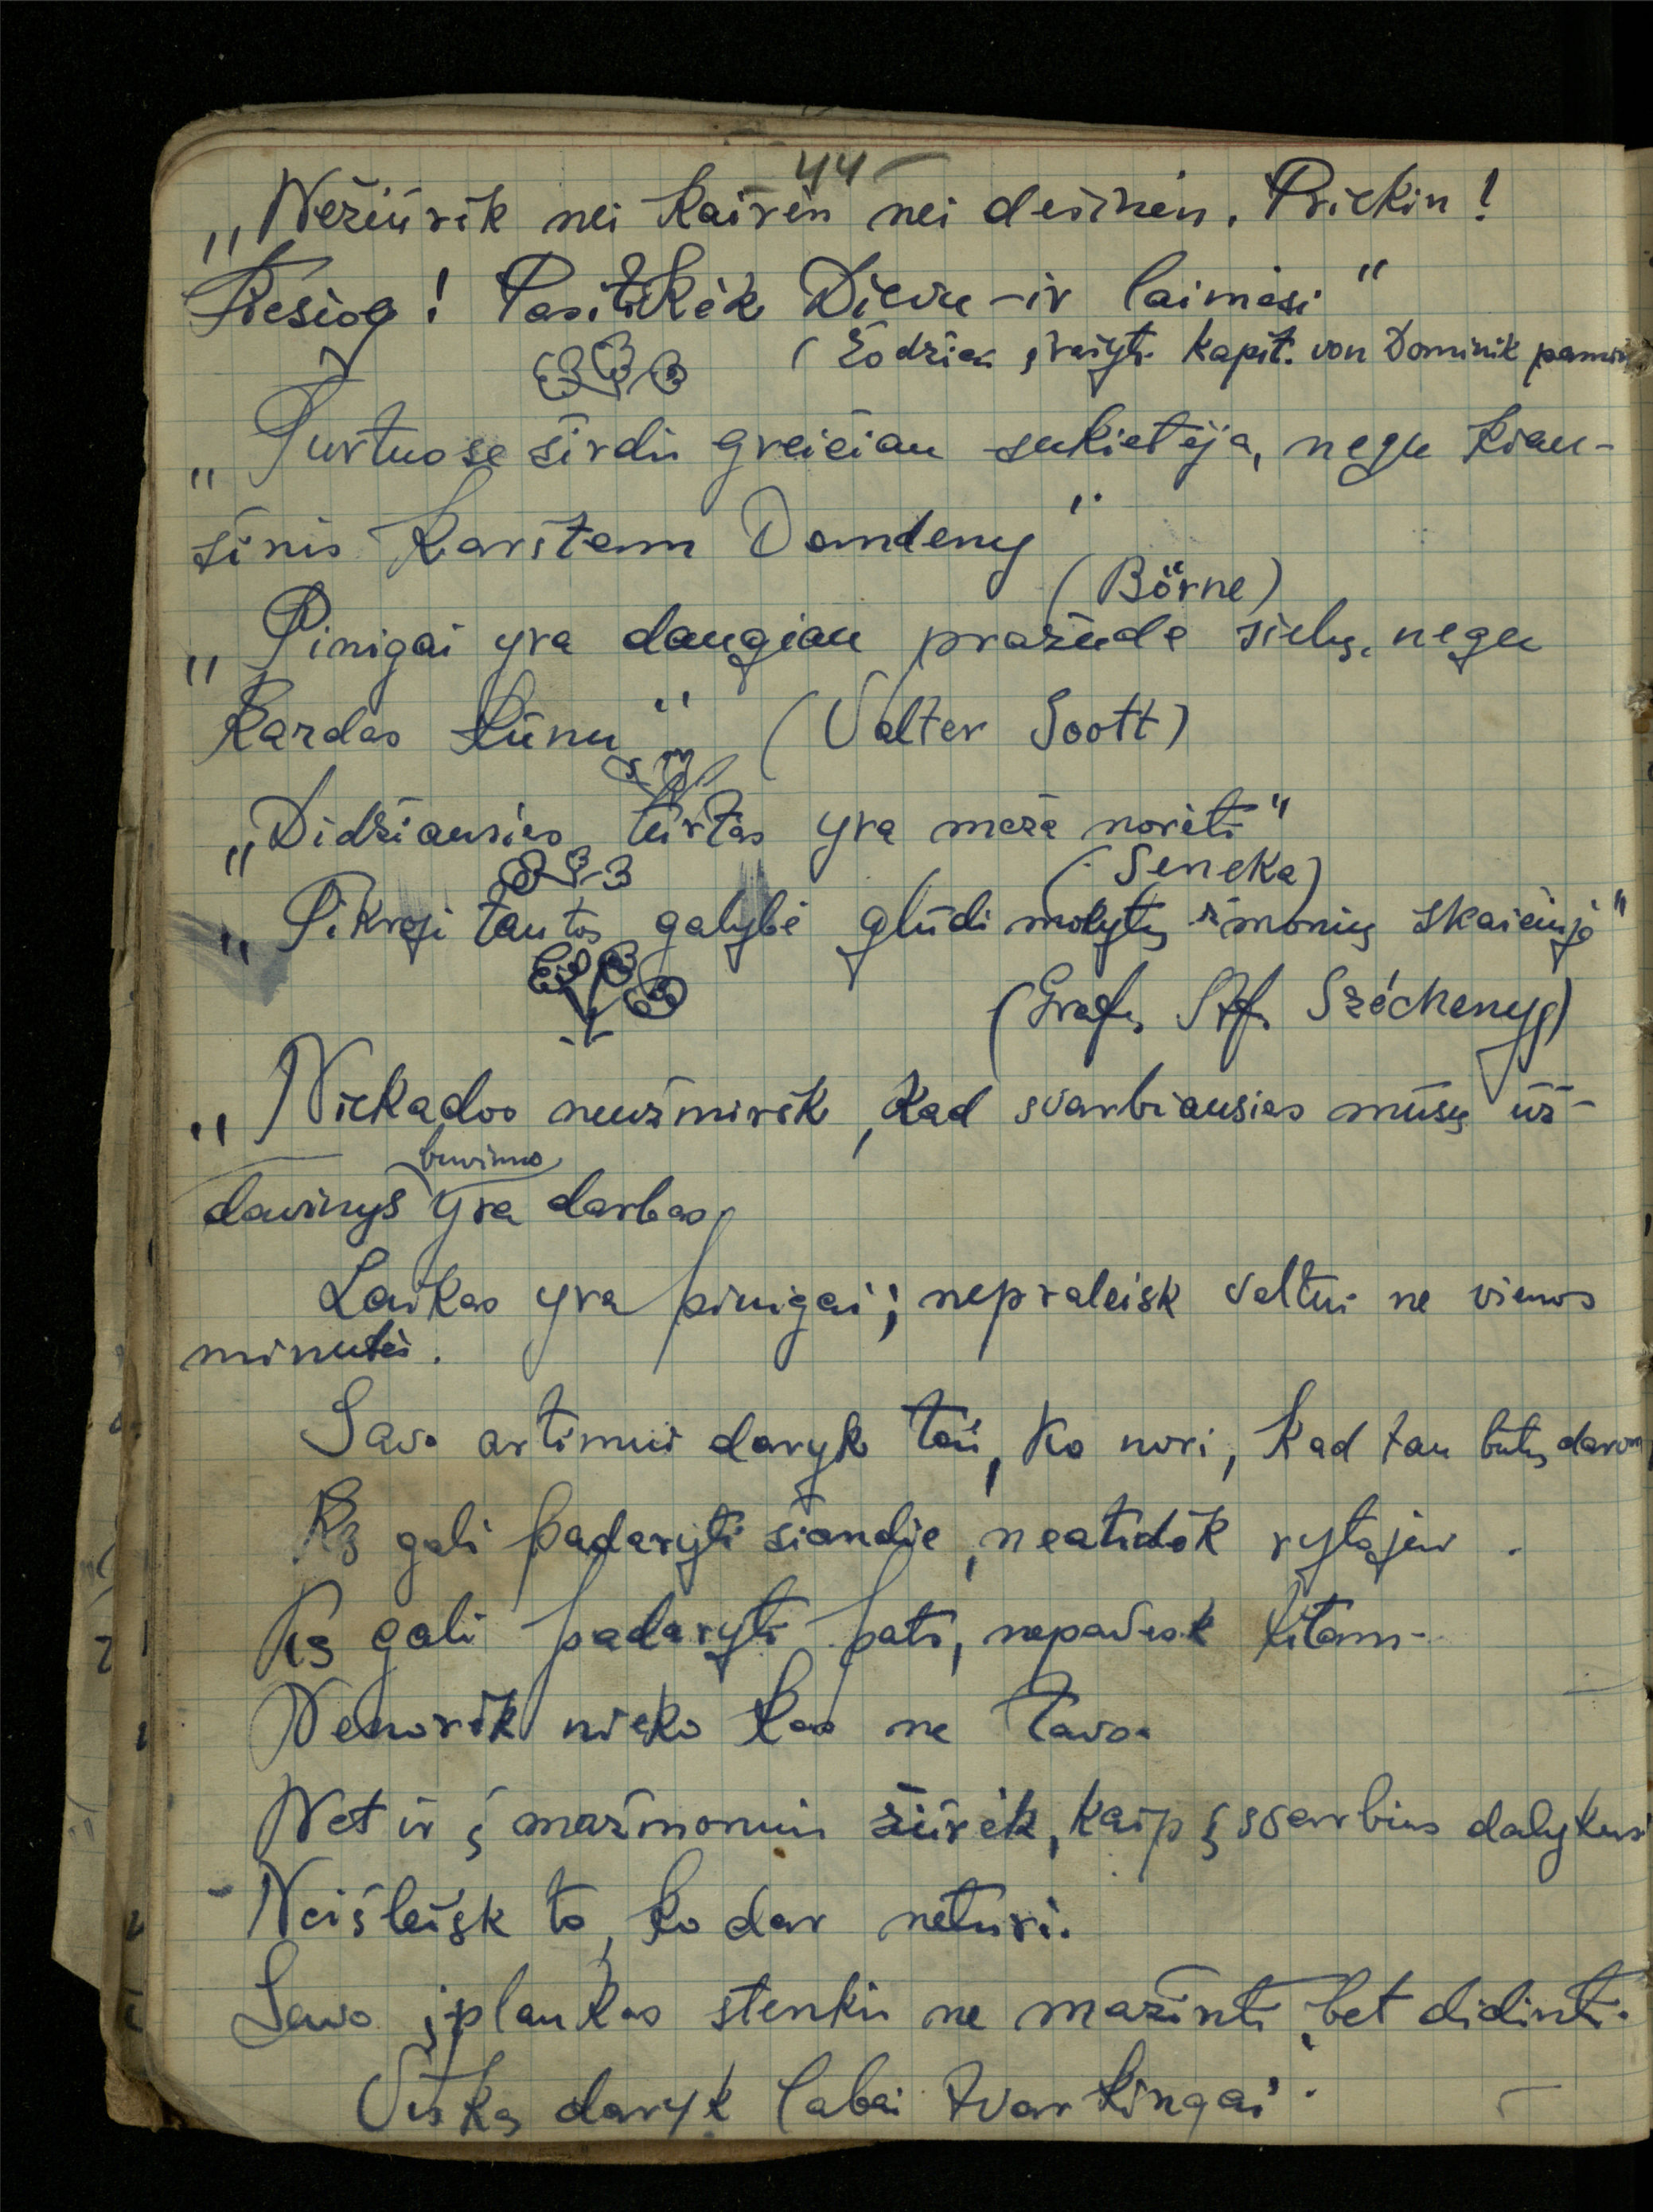 44
„Nežiūrėk nei kairėn nei dešinėn. Priekin!
Tiesiog! Pasitikėk Dievu – ir laimėsi"
(Žodžiai įraižyti kapit. von Dominik
„Turtuose širdis greičiau sukietėja, negu kiau-
šinis karštam vandeny"
(Börne)
„Pinigai yra daugiau pražudę sielų, negu
kardas kūnų" (Valter Scott)
„Didžiausias turtas yra maža norėti"
(Seneka)
„Tikroji tautos galybė glūdi mokytų žmonių skaičiuje"
(Graf. Stf. Széchenyi)
„Niekados neužmiršk, kad svarbiausias mūsų už-
buvimo
davinys yra darbas.
Laikas yra pinigai; nepraleisk veltui ne vienos
minutės.
Savo artimui daryk tai, ko nori, kad tau būtų daroma
Ką gali padaryti šiandie, neatidėk rytojui.
Ką gali padaryti pats, nepavesk kitam.
Nenorėk nieko kas ne tavo.
Net ir į mažmonius žiūrėk, kaip į svarbius dalykus
Neišleisk to, ko dar neturi.
Savo įplaukas stenkis ne mažinti, bet didinti.
Viską daryk labai tvarkingai.